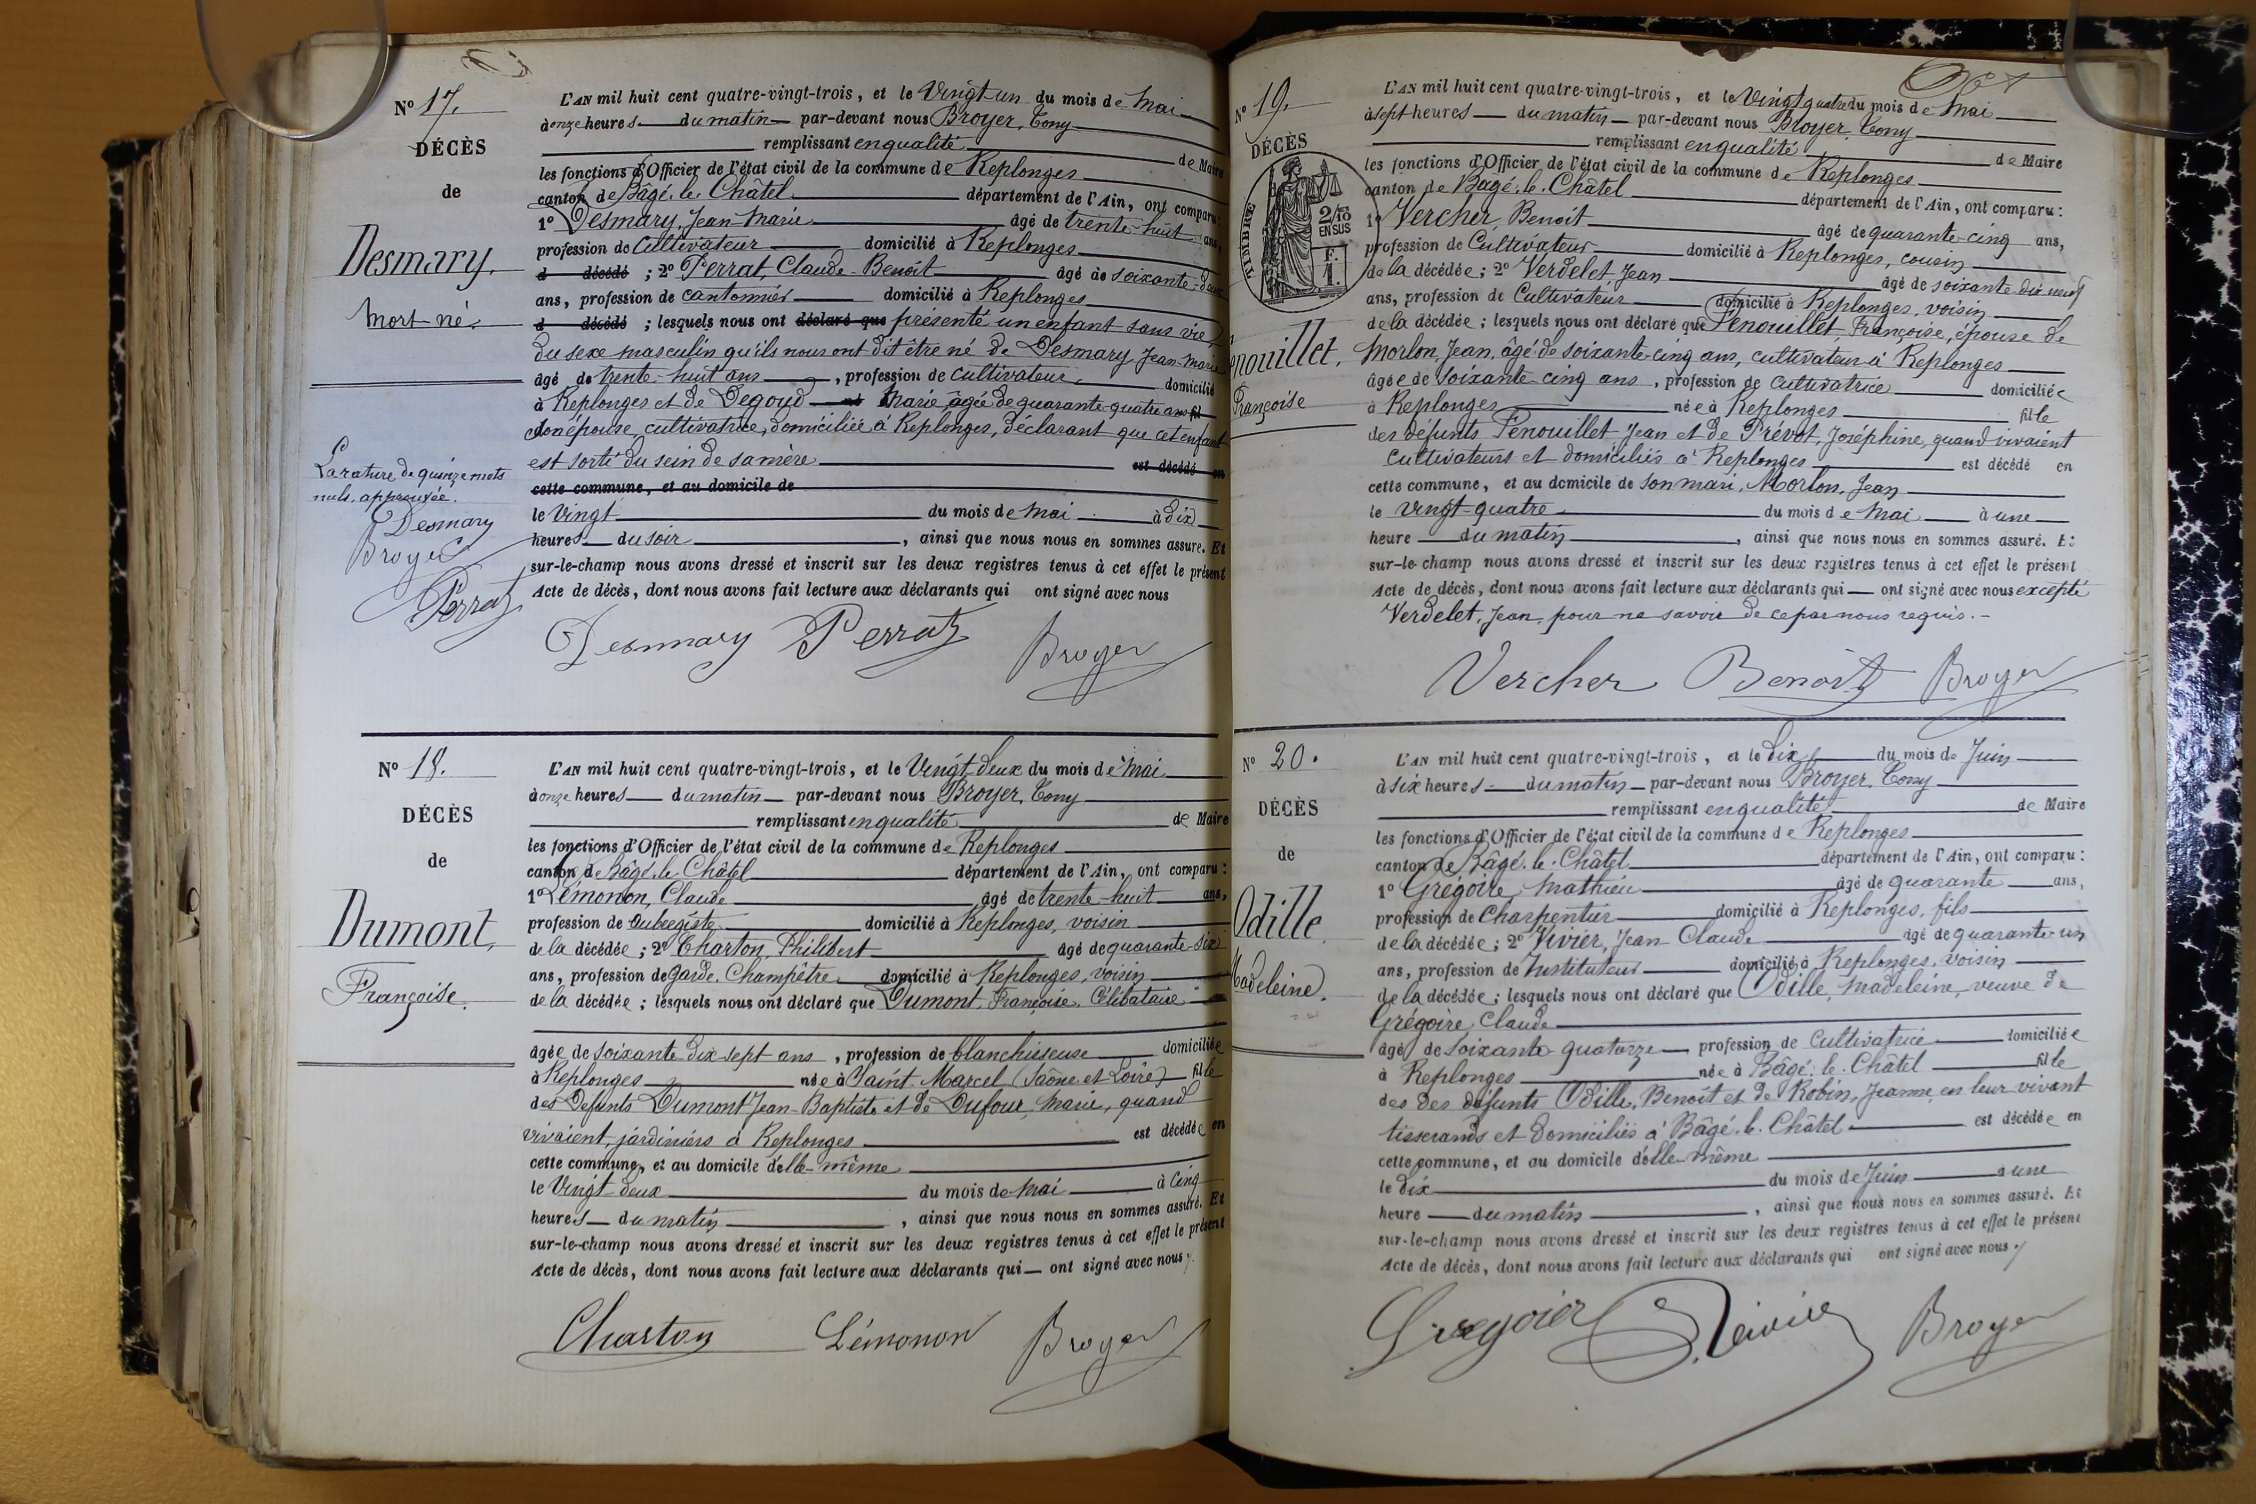 N° 17.
DÉCÈS
de
Desmary.
Mort-né.
La rature de quinze mots
nuls, approuvée.
Desmary
Broyer
Perrat
L'AN mil huit cent quatre-vingt-trois, et le Vingt un du mois de Mai
à onze heures du matin par-devant nous Broyer, Tony
remplissant en qualité de Maire
les fonctions d'Officier de l'état civil de la commune de Replonges
canton de Bâgé-le-Châtel département de l'Ain, ont comparu:
1° Desmary, Jean-Marie âgé de trente-huit ans,
profession de Cultivateur domicilié à Replonges
d décédé ; 2° Perrat, Claude-Benoit âgé de soixante-deux
ans, profession de cantonnier domicilié à Replonges
d décédé ; lesquels nous ont déclaré que présenté un enfant sans vie,
du sexe masculin qu'ils nous ont dit être né de Desmary, Jean-Marie
âgé de trente-huit ans, profession de cultivateur, domicilié
à Replonges et de Degoud né Marie âgée de quarante-quatre ans fil
son épouse, cultivatrice, domiciliée à Replonges, déclarant que cet enfant
est sorti du sein de sa mère est décédé en
cette commune, et au domicile de
le Vingt du mois de Mai à dix
heures du soir, ainsi que nous nous en sommes assuré. Et
sur-le-champ nous avons dressé et inscrit sur les deux registres tenus à cet effet le présent
Acte de décès, dont nous avons fait lecture aux déclarants qui ont signé avec nous
Desmary Perrat Broyer
N° 18.
DÉCÈS
de
Dumont,
Françoise.
L'AN mil huit cent quatre-vingt-trois, et le Vingt-deux du mois de Mai
à onze heures du matin par-devant nous Broyer, Tony
remplissant en qualité de Maire
les fonctions d'Officier de l'état civil de la commune de Replonges
canton de Bâgé-le-Châtel département de l'Ain, ont comparu:
1° Lémonon, Claude âgé de trente-huit ans,
profession de Aubergiste domicilié à Replonges, voisin
de la décédée ; 2° Charton, Philibert âgé de quarante-six
ans, profession de garde-Champêtre domicilié à Replonges, voisin
de la décédée ; lesquels nous ont déclaré que Dumont, Françoise, Célibataire
âgée de soixante-dix-sept ans, profession de blanchisseuse domiciliée
à Replonges née à Saint-Marcel (Saône-et-Loire) fille
des Défunts Dumont Jean-Baptiste et de Dufour, Marie, quand
vivaient, jardiniers à Replonges est décédée en
cette commune, et au domicile d'elle-même
le Vingt-deux du mois de Mai à Cinq
heures du matin, ainsi que nous nous en sommes assuré. Et
sur-le-champ nous avons dressé et inscrit sur les deux registres tenus à cet effet le présent
Acte de décès, dont nous avons fait lecture aux déclarants qui ont signé avec nous.
Charton Lémonon Broyer
N° 19.
DÉCÈS
TIMBRE
2/10
EN SUS
F.
1.
enouillet,
Françoise
L'AN mil huit cent quatre-vingt-trois, et le Vingt quatre du mois de Mai
à sept heures du matin par-devant nous Broyer, Tony
remplissant en qualité de Maire
les fonctions d'Officier de l'état civil de la commune de Replonges
canton de Bagé-le-Châtel département de l'Ain, ont comparu:
1° Vercher, Benoit âgé de quarante-cinq ans,
profession de Cultivateur domicilié à Replonges, cousin
de la décédée ; 2° Verdelet, Jean âgé de soixante-dix-neuf
ans, profession de Cultivateur domicilié à Replonges, voisin
de la décédée ; lesquels nous ont déclaré que Penouillet, Françoise, épouse de
Morlon, Jean, âgé de soixante-cinq ans, cultivateur à Replonges
âgée de soixante-cinq ans, profession de cultivatrice domiciliée
à Replonges née à Replonges fille
des défunts Penouillet, Jean et de Prévot, Joséphine, quand vivaient
Cultivateurs et domiciliés à Replonges est décédé en
cette commune, et au domicile de son mari, Morlon, Jean
le vingt-quatre du mois de Mai à une
heure du matin, ainsi que nous nous en sommes assuré. Et
sur-le-champ nous avons dressé et inscrit sur les deux registres tenus à cet effet le présent
Acte de décès, dont nous avons fait lecture aux déclarants qui ont signé avec nous excepté
Verdelet, Jean, pour ne savoir de ce par nous requis.
Vercher Benoit Broyer
N° 20.
DÉCÈS
de
Odille
Madeleine.
L'AN mil huit cent quatre-vingt-trois, et le dix du mois de Juin
à six heures du matin par-devant nous Broyer, Tony
remplissant en qualité de Maire
les fonctions d'Officier de l'état civil de la commune de Replonges
canton de Bâgé-le-Châtel département de l'Ain, ont comparu:
1° Grégoire, Mathieu âgé de quarante ans,
profession de Charpentier domicilié à Replonges, fils
de la décédée ; 2° Vivier, Jean-Claude âgé de quarante-un
ans, profession de Instituteur domicilié à Replonges, voisin
de la décédée ; lesquels nous ont déclaré que Odille, Madeleine, veuve de
Grégoire, Claude
âgé de soixante-quatorze profession de Cultivatrice domiciliée
à Replonges née à Bâgé-le-Châtel fille
des des défunts Odille, Benoît et de Robin, Jeanne, en leur vivant
tisserands et domiciliés à Bâgé-le-Châtel est décédée en
cette commune, et au domicile d'elle-même
le dix du mois de Juin à une
heure du matin, ainsi que nous nous en sommes assuré. Et
sur-le-champ nous avons dressé et inscrit sur les deux registres tenus à cet effet le présent
Acte de décès, dont nous avons fait lecture aux déclarants qui ont signé avec nous.
Gregoier Vivier Broyer